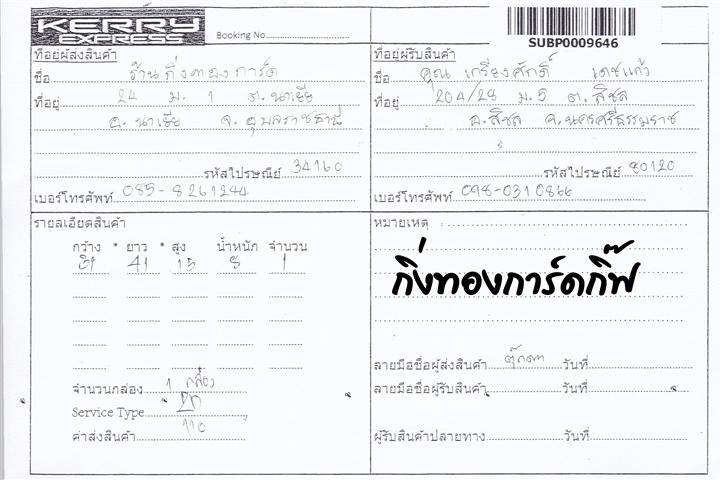 KERRY
EXPRESS
Booking No.
SUBP0009646
ที่อยู่ผู้ส่งสินค้า
ชื่อ ร้านกิ่งทองการ์ด
ที่อยู่ 24 ม. 1 ต.นาเยีย
อ. นาเยีย จ. อุบลราชธานี
รหัสไปรษณีย์ 34160
เบอร์โทรศัพท์ 085-8261244
ที่อยู่ผู้รับสินค้า
ชื่อ คุณ เกรียงศักดิ์ เดชแก้ว
ที่อยู่ 204/28 ม.5 ต. สิชล
อ.สิชล จ.นครศรีธรรมราช
รหัสไปรษณีย์ 80120
เบอร์โทรศัพท์ 098-0310866
รายละเอียดสินค้า
กว้าง * ยาว * สูง น้ำหนัก จำนวน
31 41 15 8 1
จำนวนกล่อง 1 กล่อง
Service Type
ค่าส่งสินค้า 110
หมายเหตุ
กิ่งทองการ์ดกิ๊ฟ
ลายมือชื่อผู้ส่งสินค้า ตุ๊กตา วันที่
ลายมือชื่อผู้รับสินค้า วันที่
ผู้รับสินค้าปลายทาง วันที่